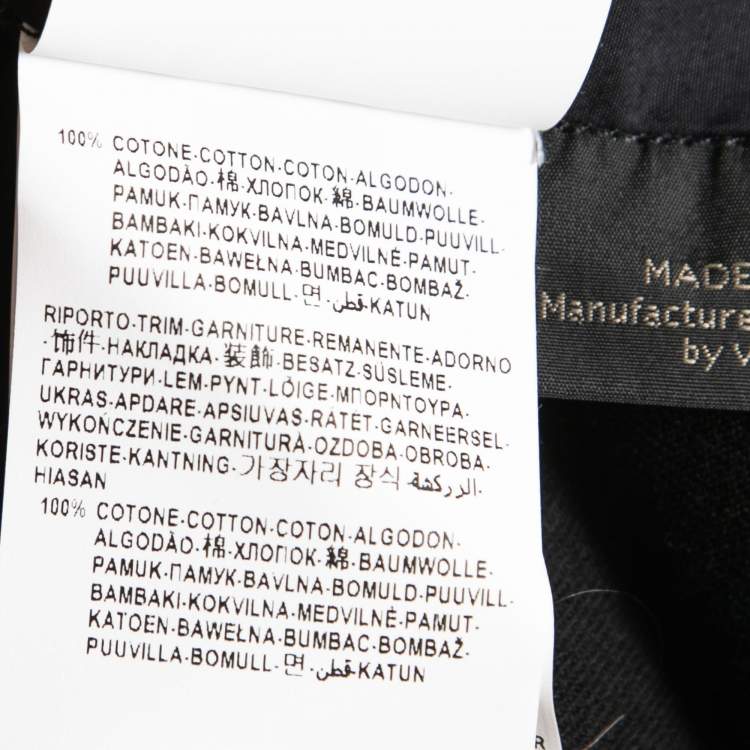 100% COTONE·COTTON·COTON·ALGODON·
ALGODÃO·棉·ХЛОПОК·綿·BAUMWOLLE·
PAMUK·ПАМУК·BAVLNA·BOMULD·PUUVILL·
BAMBAKI·KOKVILNA·MEDVILNĖ·PAMUT·
KATOEN·BAWEŁNA·BUMBAC·BOMBAŽ·
PUUVILLA·BOMULL·면·قطن·KATUN
RIPORTO·TRIM·GARNITURE·REMANENTE·ADORNO
·饰件·НАКЛАДКА·装飾·BESATZ·SÜSLEME·
ГАРНИТУРИ·LEM·PYNT·LÕIGE·ΜΠΟΡΝΤΟΥΡΑ·
UKRAS·APDARE·APSIUVAS·RÁTÉT·GARNEERSEL·
WYKOŃCZENIE·GARNITURĂ·OZDOBA·OBROBA·
KORISTE·KANTNING·가장자리 장식·الزركشة·
HIASAN
100% COTONE·COTTON·COTON·ALGODON·
ALGODÃO·棉·ХЛОПОК·綿·BAUMWOLLE·
PAMUK·ПАМУК·BAVLNA·BOMULD·PUUVILL·
BAMBAKI·KOKVILNA·MEDVILNĖ·PAMUT·
KATOEN·BAWEŁNA·BUMBAC·BOMBAŽ·
PUUVILLA·BOMULL·면·قطن·KATUN
MADE
Manufactura
by